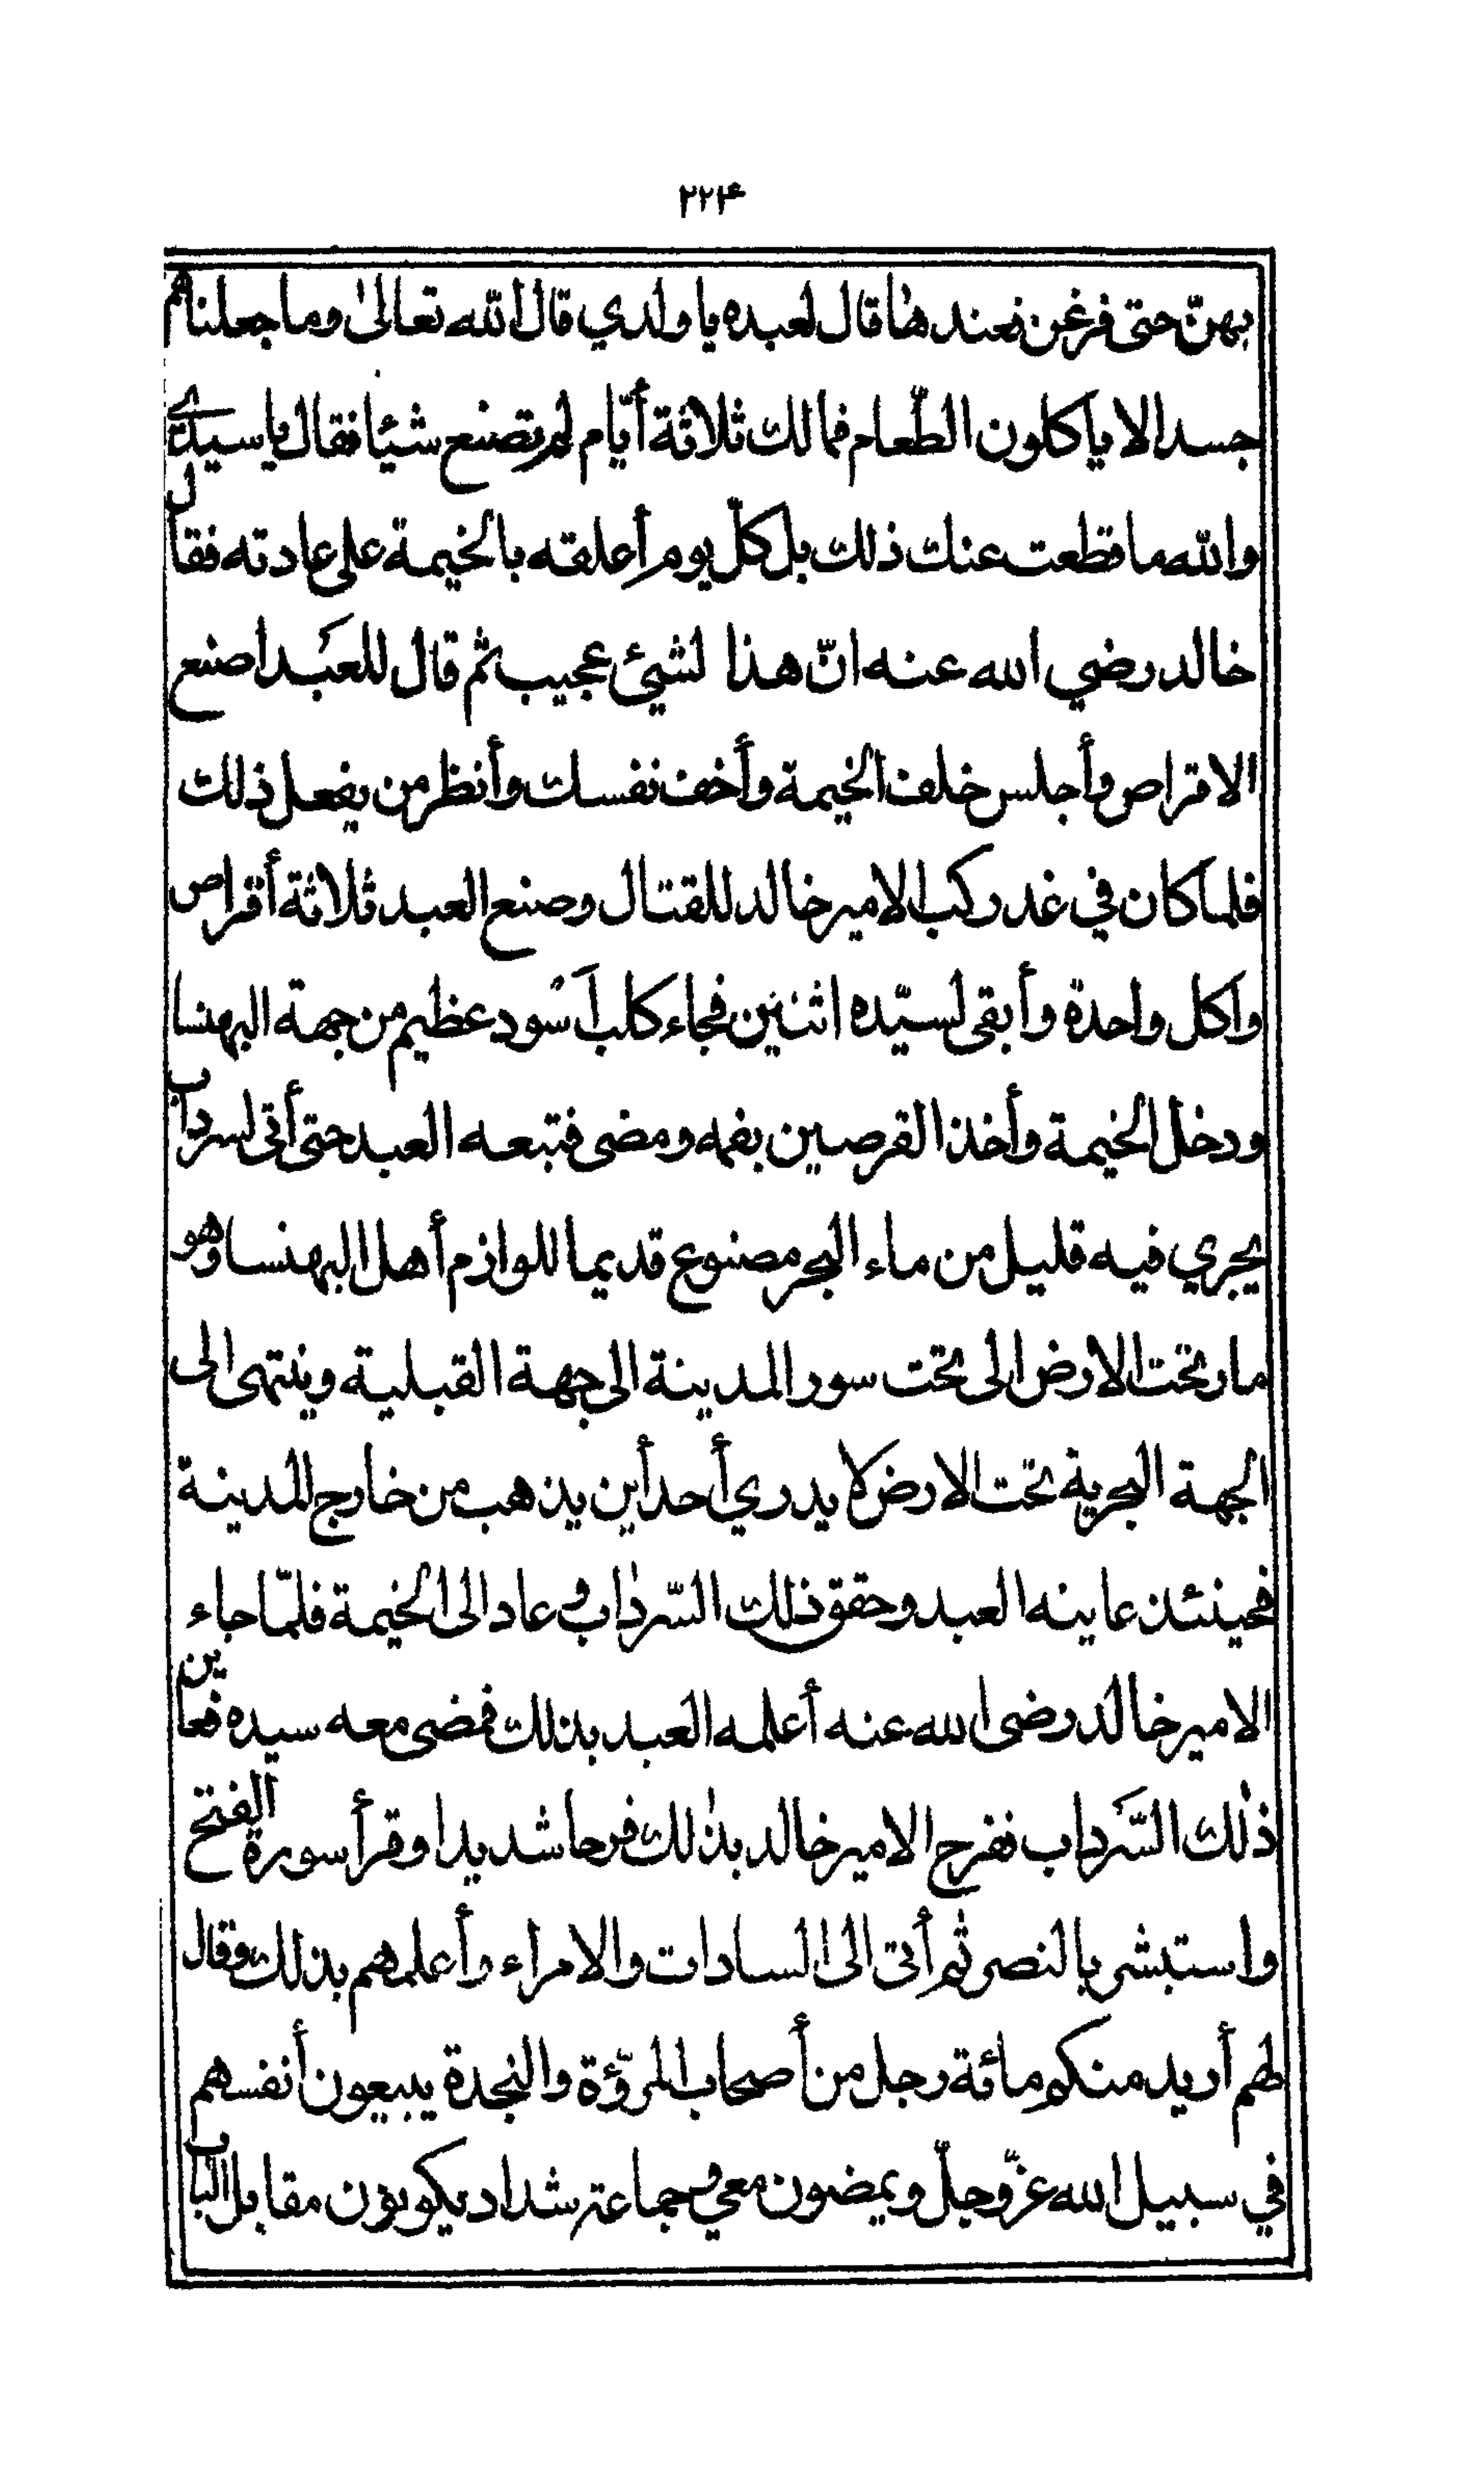 ٢٢٤
بهنّ حتى فرغن فعندها قال لعبده يا ولدي قال الله تعالى وما جعلناهم
جسدا لا ياكلون الطّعام فمالك ثلاثة أيّام لم تصنع شيئا فقال يا سيدي
والله ما قطعت عنك ذلك بل كلّ يوم أعلقه بالخيمة على عادته فقال
خالد رضي الله عنه انّ هذا لشيئ عجيب ثم قال للعبد اصنع
الاقراص وأجلس خلف الخيمة وأخف نفسك وأنظر من يفعل ذلك
فلما كان في غد ركب الامير خالد للقتال وصنع العبد ثلاثة أقراص
واكل واحدة وأبقى لسيّده اثنين فجاء كلب أسود عظيم من جهة البهنسا
ودخل الخيمة وأخذ القرصين بفمه ومضى فتبعه العبد حتى أتى لسرداب
يجري فيه قليل من ماء البحر مصنوع قديما للوازم أهل البهنسا وهو
مار تحت الارض الى تحت سور المدينة الى جهة القبلية وينتهى الى
الجهة البحرية تحت الارض لا يدري أحد أين يذهب من خارج المدينة
فحينئذ عاينه العبد وحقق ذلك السّرداب وعاد الى الخيمة فلمّا جاء
الامير خالد رضى الله عنه أعلمه العبد بذلك فمضى معه سيده فعاين
ذلك السّرداب ففرح الامير خالد بذلك فرحا شديدا وقرأ سورة الفتح
واستبشر بالنصر ثم أتى الى السادات والامراء وأعلمهم بذلك وقال
لهم أريد منكم مائة رجل من أصحاب المروّة والنجدة يبيعون أنفسهم
في سبيل الله عزّ وجلّ ويمضون معي وجماعة شداد يكونون مقابل الباب